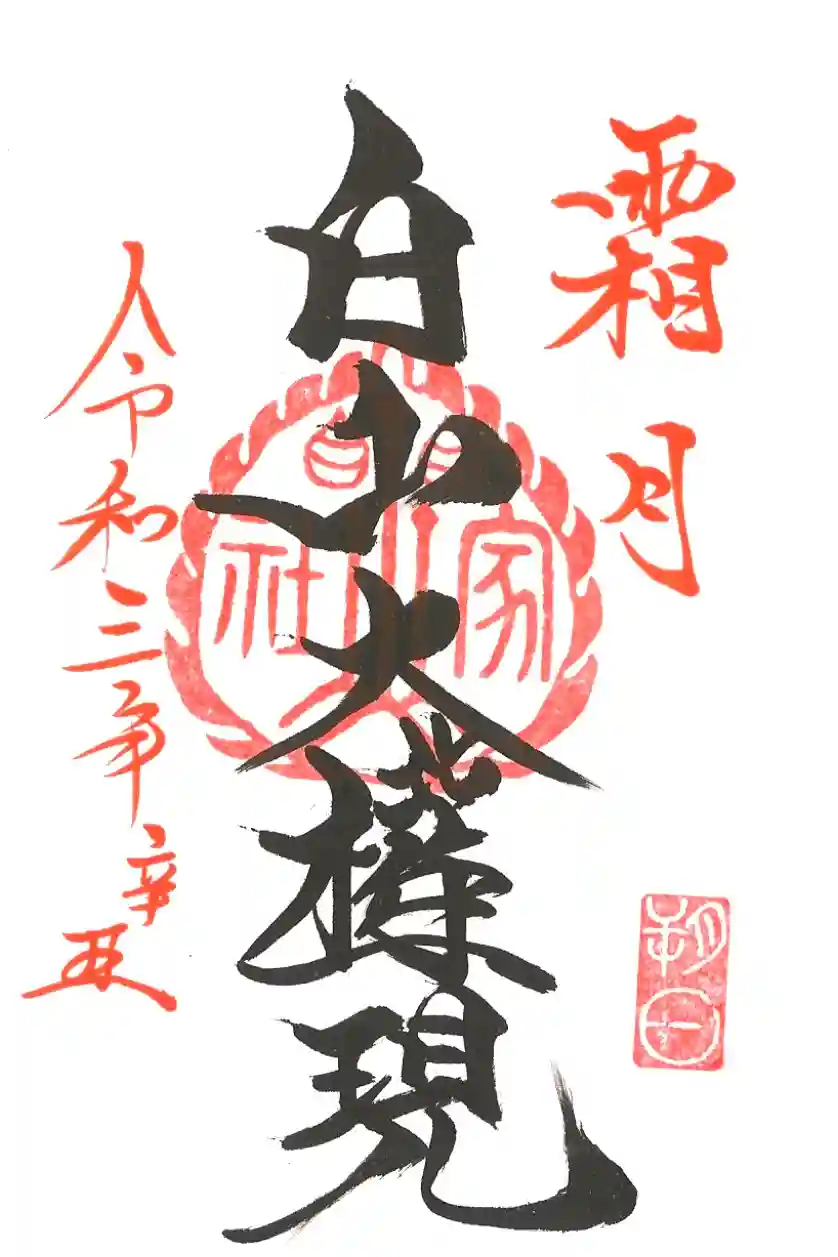 霜月
朔日
白山大権現
令和三年辛丑